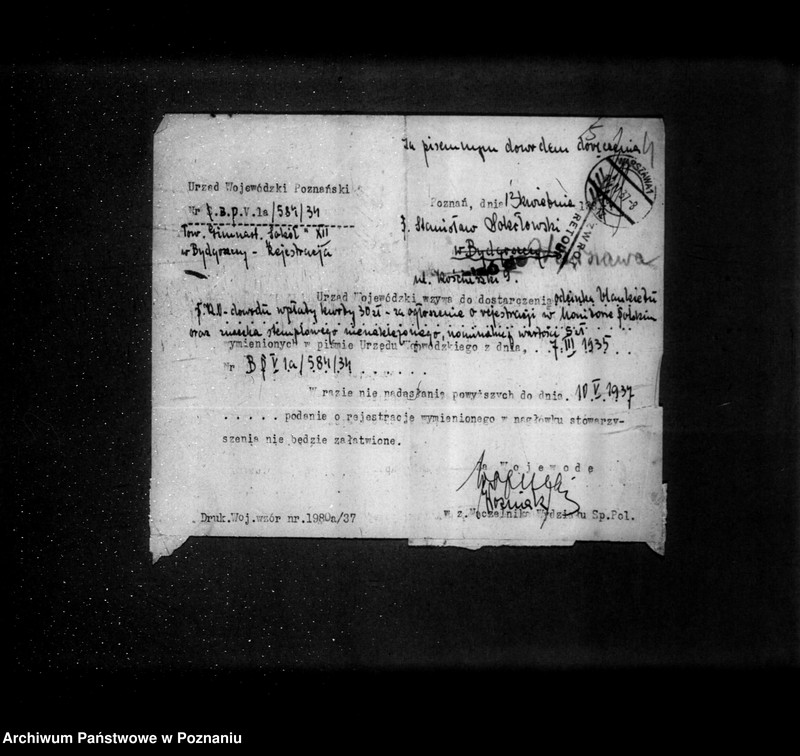 Za pisemnym dowodem doręczenia
Urząd Wojewódzki Poznański
Nr f.B.p.V.1a/584/34
Tow. Gimnast. "Sokół" XII
w Bydgoszczy - Rejestracja
Poznań, dnia 13 kwietnia 19
WARSZAWA
ZWROT
RETOUR
Stanisław
w Bydgoszczy
Warszawa
ul. Kościuszki 9.
Urząd Wojewódzki wzywa do dostarczenia odcinka blankietu
P.K.O - dowodu wpłaty kwoty 30 zł - za ogłoszenie o rejestracji w Monitorze Polskim
oraz znaczka stemplowego nienaklejonego, nominalnej wartości 5 zł
wymienionych w piśmie Urzędu Wojewódzkiego z dnia. . 7.III 1935 . . .
Nr B p V 1a/584/34 . . . . . .
W razie nie nadesłania powyższych do dnia. 10.V.1937
. . . . . podanie o rejestrację wymienionego w nagłówku stowarzy-
szenia nie będzie załatwione.
Za Wojewodę
w z.Naczelnika Wydziału Sp.Pol.
Druk.Woj.wzór nr.1980a/37
Archiwum Państwowe w Poznaniu